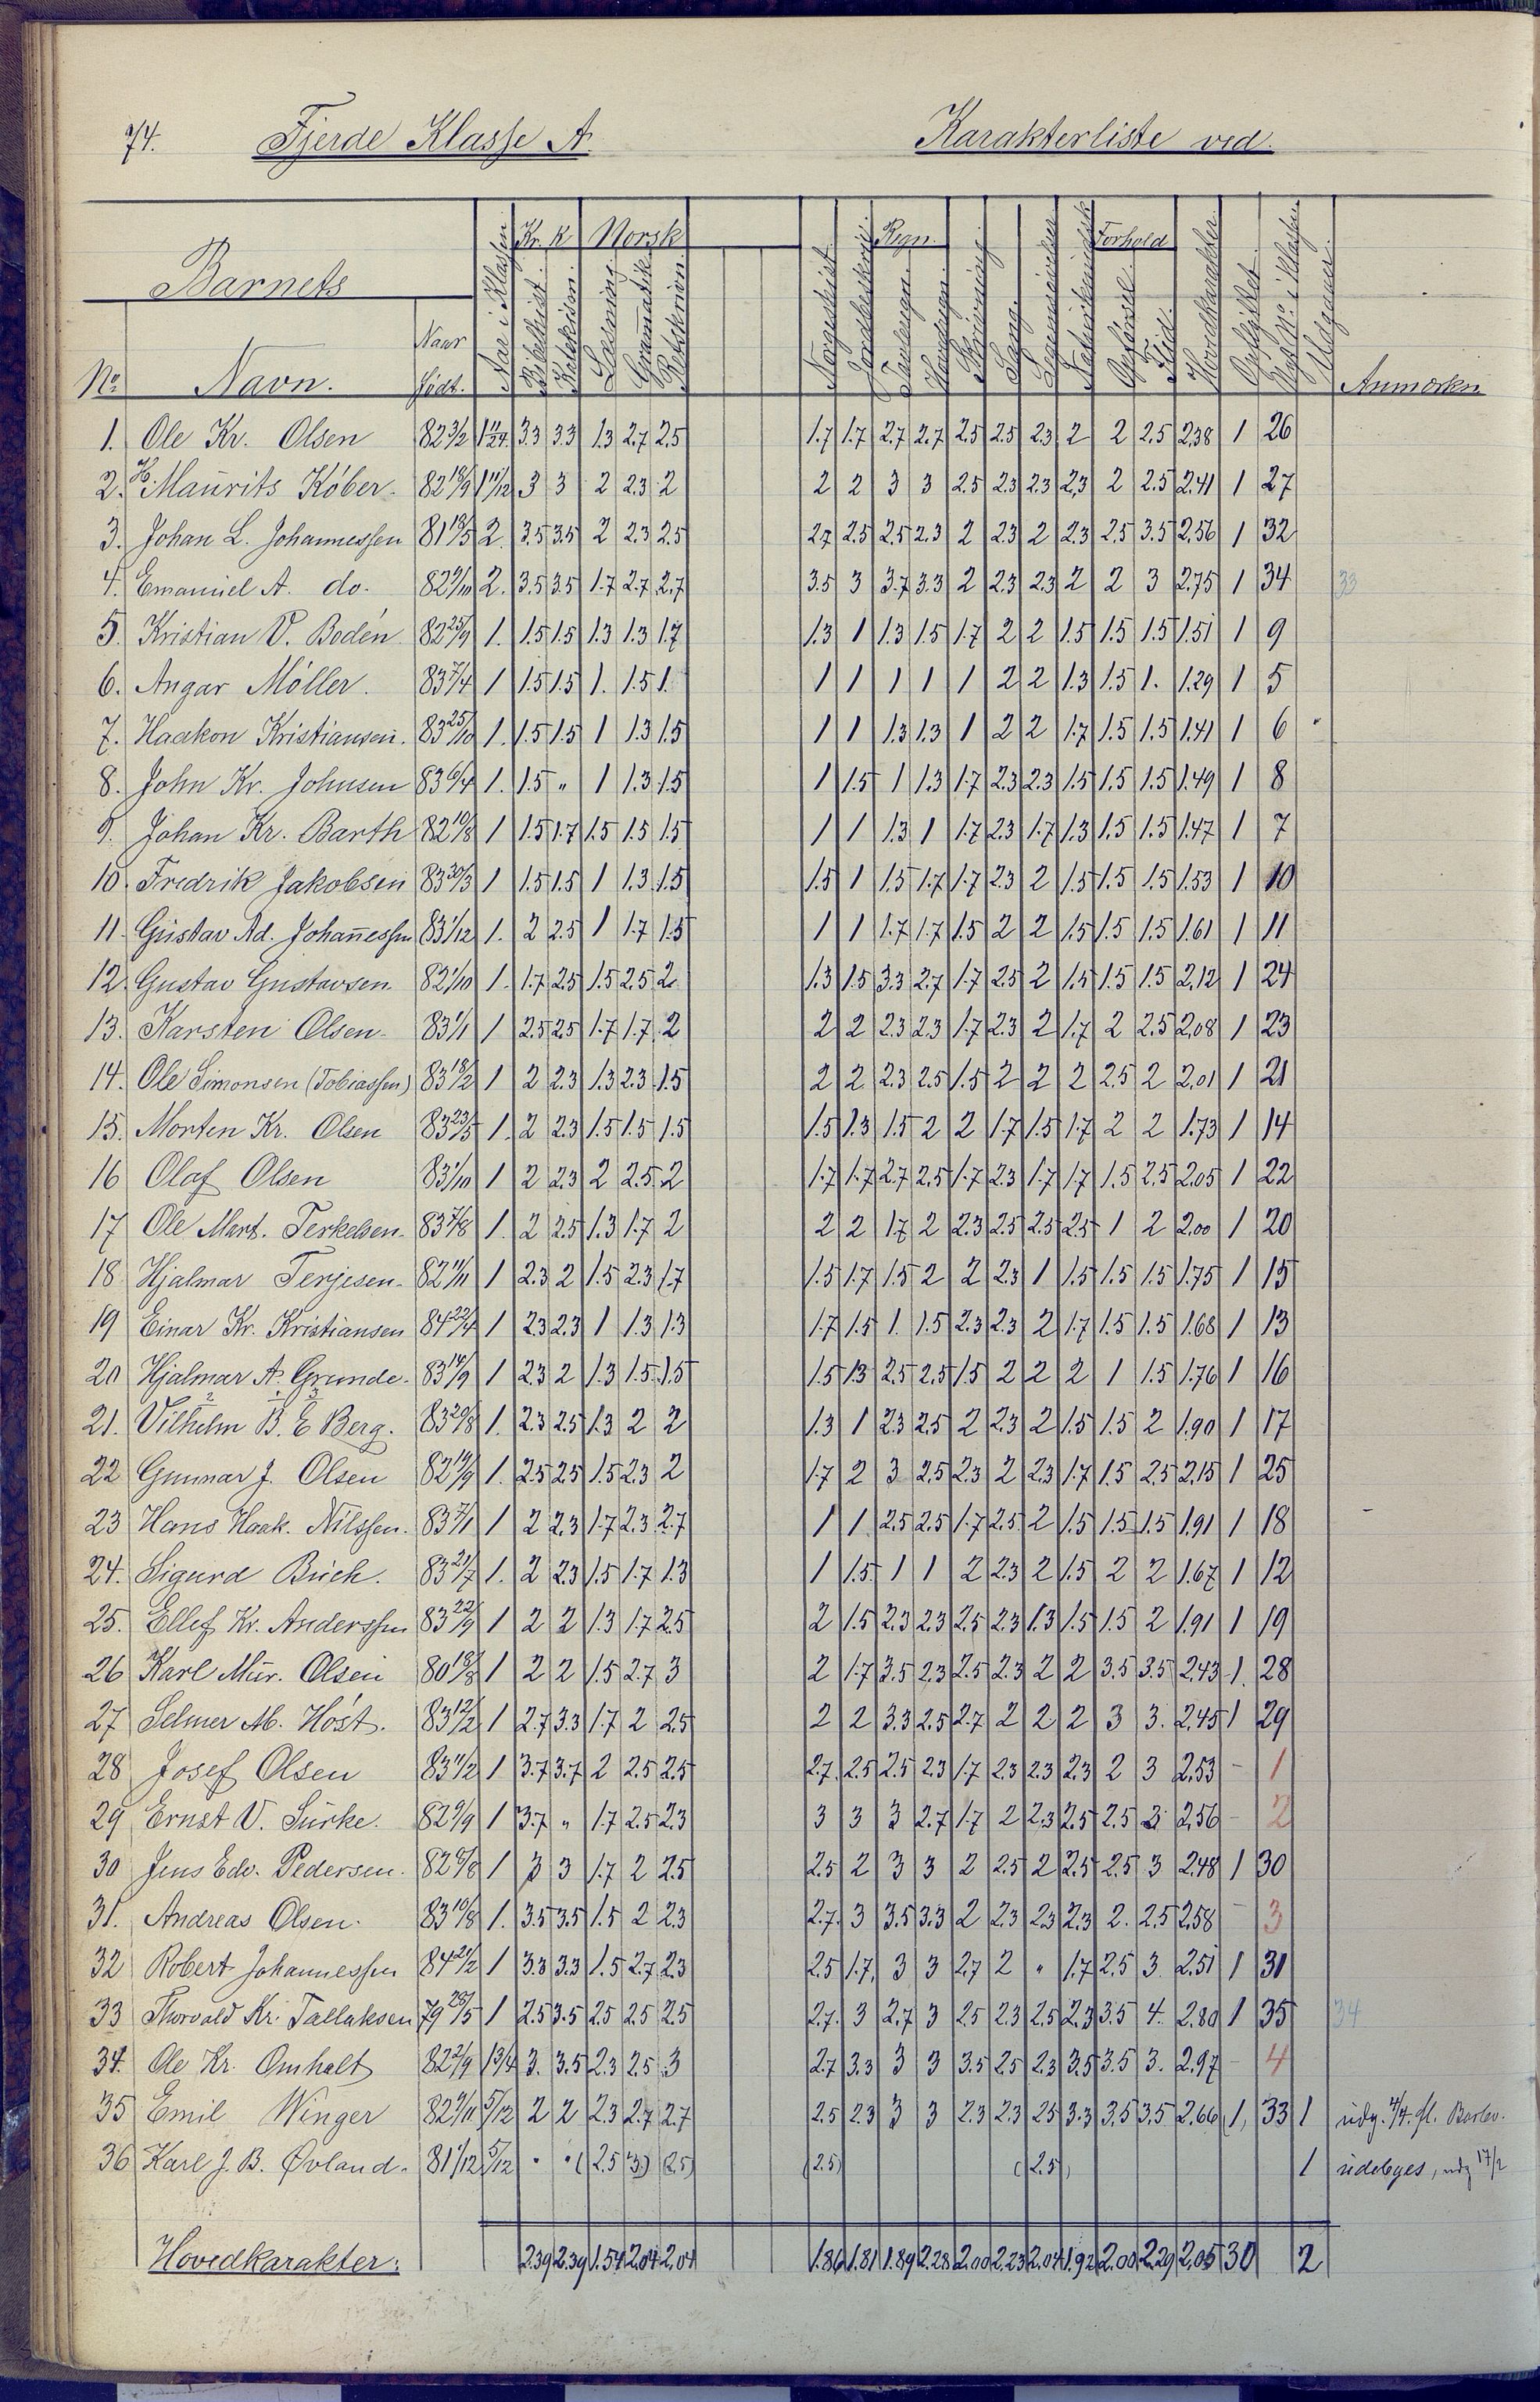 74. Fjerde Klasse A. Karakterliste ved.
Barnets Kr. K Norsk Regn. Forhold
No. Navn. Naar födt. Aar i Klassen Bibelhist. Katekism. Læsning Grammatik Retskrivn. Norgeshist. Jordbeskriv. Tavleregn. Hovedregn. Skrivning Sang. Legemsövelser Naturkundsk. Opförsel. Flid. Hovedkarakter Opflyttet Nyt No. i Klassen Udgaaet. Anmærkn
1. Ole Kr. Olsen 82 3/2 1 11/24. 3.3 3.3 1.3 2.7 2.5 1.7 1.7 2.7 2.7 2.5 2.5 2.3 2 2 2.5 2.38 1 26
2. H. Maurits Köber. 82 18/9 1 11/12 3 3 2 2.3 2 2 2 3 3 2.5 2.3 2.3 2.3 2 2.5 2.41 1 27
3. Johan L. Johannessen 81 18/5 2. 3.5 3.5 2 2.3 2.5 2.7 2.5 2.5 2.3 2 2.3 2 2.3 2.5 3.5 2.56 1 32
4. Emanuel A. do. 82 9/10 2. 3.5 3.5 1.7 2.7 2.7 3.5 3 3.7 3.3 2 2.3 2.3 2 2 3 2.75 1 34 33
5. Kristian V. Bodén 82 25/9 1. 1.5 1.5 1.3 1.3 1.7 1.3 1 1.3 1.5 1.7 2 2 1.5 1.5 1.5 1.51 1 9
6. Angar Möller. 83 7/4 1 1.5 1.5 1. 1.5 1. 1 1 1 1 1 2 2 1.3 1.5 1. 1.29 1 5
7. Haakon Kristiansen. 83 25/10 1. 1.5 1.5 1 1.3 1.5 1 1 1.3 1.3 1 2 2 1.7 1.5 1.5 1.41 1 6
8. John Kr. Johnsen 83 6/4 1. 1.5 " 1 1.3 1.5 1 1.5 1 1.3 1.7 2.3 2.3 1.5 1.5 1.5 1.49 1 8
9. Johan Kr. Barth 82 10/8 1 1.5 1.7 1.5 1.5 1.5 1 1 1.3 1 1.7 2.3 1.7 1.3 1.5 1.5 1.47 1 7
10. Fredrik Jakobsen 83 30/3 1 1.5 1.5 1 1.3 1.5 1.5 1 1.5 1.7 1.7 2.3 2 1.5 1.5 1.5 1.53 1 10
11. Gustav Ad. Johannessen 83 1/12 1. 2 2.5 1 1.7 1.5 1 1 1.7 1.7 1.5 2 2 1.5 1.5 1.5 1.61 1 11
12. Gustav Gustavsen 82 1/10 1. 1.7 2.5 1.5 2.5 2 1.3 1.5 3.3 2.7 1.7 2.5 2 1.5 1.5 1.5 2.12 1 24
13. Karsten Olsen. 83 1/1 1 2.5 2.5 1.7 1.7 2 2 2 2.3 2.3 1.7 2.3 2 1.7 2 2.5 2.08 1 23
14. Ole Simonsen (Tobiassen) 83 18/2 1 2 2.3 1.3 2.3 1.5 2 2 2.3 2.5 1.5 2 2 2 2.5 2 2.01 1 21
15. Morten Kr. Olsen 83 23/5 1. 2 2.3 1.5 1.5 1.5 1.5 1.3 1.5 2 2 1.7 1.5 1.7 2 2 1.73 1 14
16 Olaf Olsen 83 1/10 1 2 2.3 2 2.5 2 1.7 1.7 2.7 2.5 1.7 2.3 1.7 1.7 1.5 2.5 2.05 1 22
17 Ole Mart. Terkelsen. 83 7/8 1. 2 2.5 1.3 1.7 2 2 2 1.7 2 2.3 2.5 2.5 2.5 1 2 2.00 1 20
18 Hjalmar Terjesen. 82 11/11 1 2.3 2 1.5 2.3 1.7 1.5 1.7 1.5 2 2 2.3 1 1.5 1.5 1.5 1.75 1 15
19 Einar Kr. Kristiansen 84 22/4 1 2.3 2.3 1 1.3 1.3 1.7 1.5 1. 1.5 2.3 2.3 2 1.7 1.5 1.5 1.68 1 13
20 Hjalmar A. Grunde. 83 14/9 1 2.3 2 1.3 1.5 1.5 1.5 1.3 2.5 2.5 1.5 2 2 2 1 1.5 1.76 1 16
21. Vilhelm B. E Berg. 83 20/8 1. 2.3 2.5 1.3 2 2 1.3 1 2.3 2.5 2 2.3 2 1.5 1.5 2 1.90 1 17
22 Gunnar J. Olsen 82 19/9 1. 2.5 2.5 1.5 2.3 2 1.7 2 3 2.5 2.3 2 2.3 1.7 1.5 2.5 2.15 1 25
23 Hans Haak. Nilssen. 83 7/1 1 2 2.3 1.7 2.3 2.7 1 1 2.5 2.5 1.7 2.5 2 1.5 1.5 1.5 1.91 1 18
24. Sigurd Buch. 83 21/7 1. 2 2.3 1.5 1.7 1.3 1 1.5 1 1 2 2.3 2 1.5 2 2 1.67 1 12
25. Ellef Kr. Anderssen 83 22/9 1 2 2 1.3 1.7 2.5 2 1.5 2.3 2.3 2.5 2.3 1.3 1.5 1.5 2 1.91 1 19
26 Karl Mur. Olsen 80 18/8 1 2 2 1.5 2.7 3 2 1.7 3.5 2.3 2.5 2.3 2 2 3.5 3.5 2.43 1. 28
27 Selmer M. Höst. 83 12/2 1 2.7 3.3 1.7 2 2.5 2 2 3.3 2.5 2.7 2 2 2 3 3. 2.45 1 29
28 Josef Olsen 83 11/2 1 3.7 3.7 2 2.5 2.5 2.7. 2.5 2.5 2.3 1.7 2.3 2.3 2.3 2 3 2.53 - 1
29 Ernst V. Surke. 82 9/9 1 3.7 " 1.7 2.5 2.3 3 3 3 2.7 1.7 2 2.3 2.5 2.5 3 2.56 - 2
30 Jens Edv. Pedersen. 82 6/8 1 3 3 1.7 2 2.5 2.5 2 3 3 2 2.5 2 2.5 2.5 3 2.48 1 30
31. Andreas Olsen. 83 10/8 1. 3.5 3.5 1.5 2 2.3 2.7. 3 3.5 3.3 2 2.3 2.3 2.3 2. 2.5 2.58 - 3
32 Robert Johannessen 84 21/2 1 3.3 3.3 1.5 2.7 2.3 2.5 1.7. 3 3 2.7 2 " 1.7 2.5 3 2.51 1 31
33 Thorvald Kr. Tallaksen 79 28/5 1 2.5 3.5 2.5 2.5 2.5 2.7. 3 2.7 3 2.5 2.3 2.5 2.3 3.5 4. 2.80 1 35 34
34. Ole Kr. Omholt 82 2/9 1 3/4 3. 3.5 2.3 2.5 3 2.7 3.3 3 3 3.5 2.5 2.3 3.5 3.5 3. 2.97 - 4
35 Emil Winger 82 9/11 5/12 2 2 2.3 2.7 2.7 2.5 2.3 3 3 2.3 2.3 2.5 3.3 3.5 3.5 2.66 1, 33 1 udg. 4/4. fl.
36 Karl J. B. Øvland. 81 1/12 5/12 " " (2.5 3) (2.5) (2.5) (2.5) 1 udeloges, udg 17/2
Hovedkarakter: 2.39 2.39 1.54 2.04 2.04 1.86 1.81 1.89 2.28 2.00 2.23 2.04 1.92 2.00 2.29 2.05 30 2